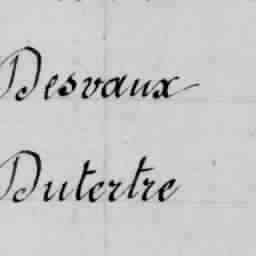 Desvaux
Dutertre